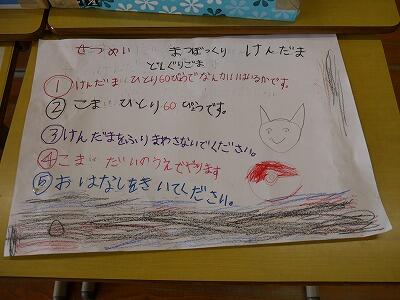 せつめい まつぼっくり けんだま
どんぐりごま
①けんだまはひとり60びょうでなんかいはいるかです。
②こまはひとり60びょうです。
③けんだまをふりまわさないでください。
④こまはだいのうえでやります
⑤おはなしをきいてください。